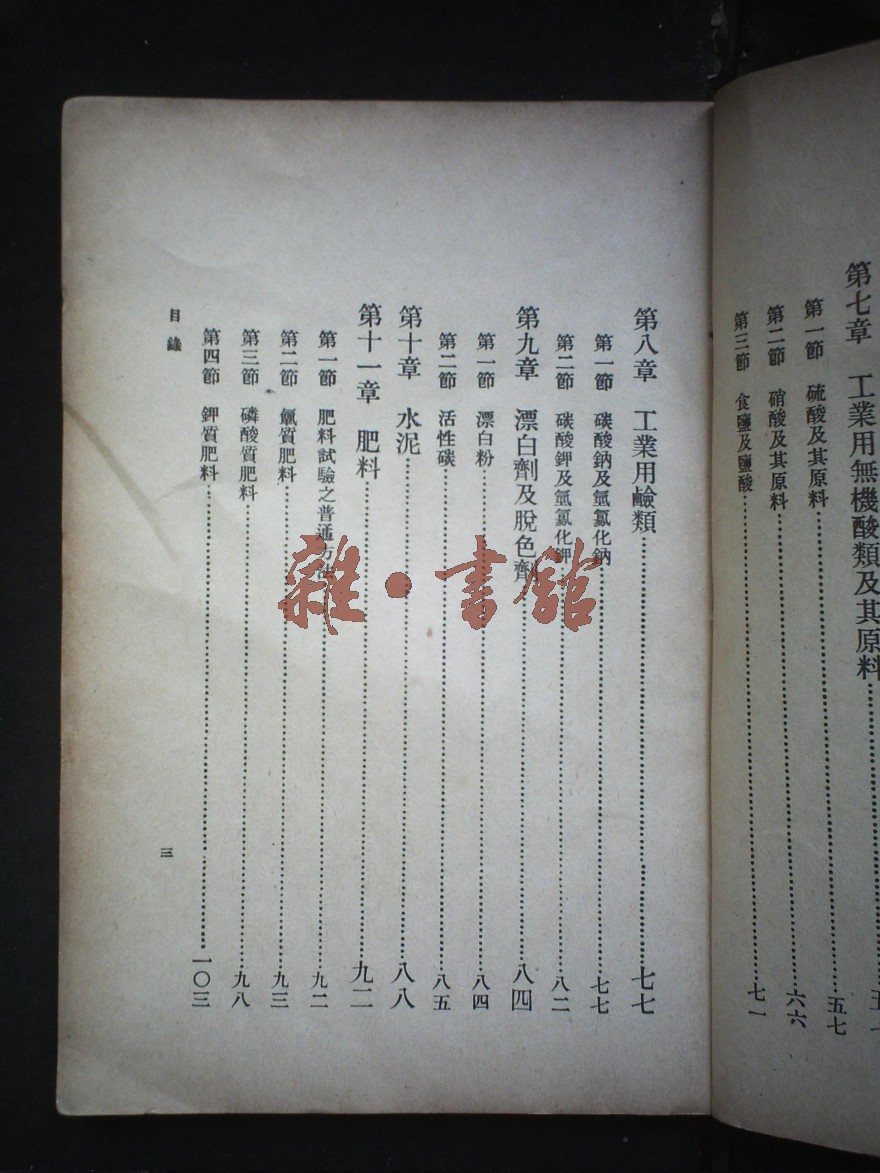 第七章　工業用無機酸類及其原料
第一節　硫酸及其原料……五七
第二節　硝酸及其原料……六六
第三節　食鹽及鹽酸……七一
第八章　工業用鹼類……七七
第一節　碳酸鈉及化鈉……七七
第二節　碳酸鉀及化鉀……八二
第九章　漂白劑及脫色劑……八四
第一節　漂白粉……八四
第二節　活性碳……八五
第十章　水泥……八八
第十一章　肥料……九二
第一節　肥料試驗之普通方法……九二
第二節　質肥料……九三
第三節　磷酸質肥料……九八
第四節　鉀質肥料……一〇三
目錄
三
雜·書館